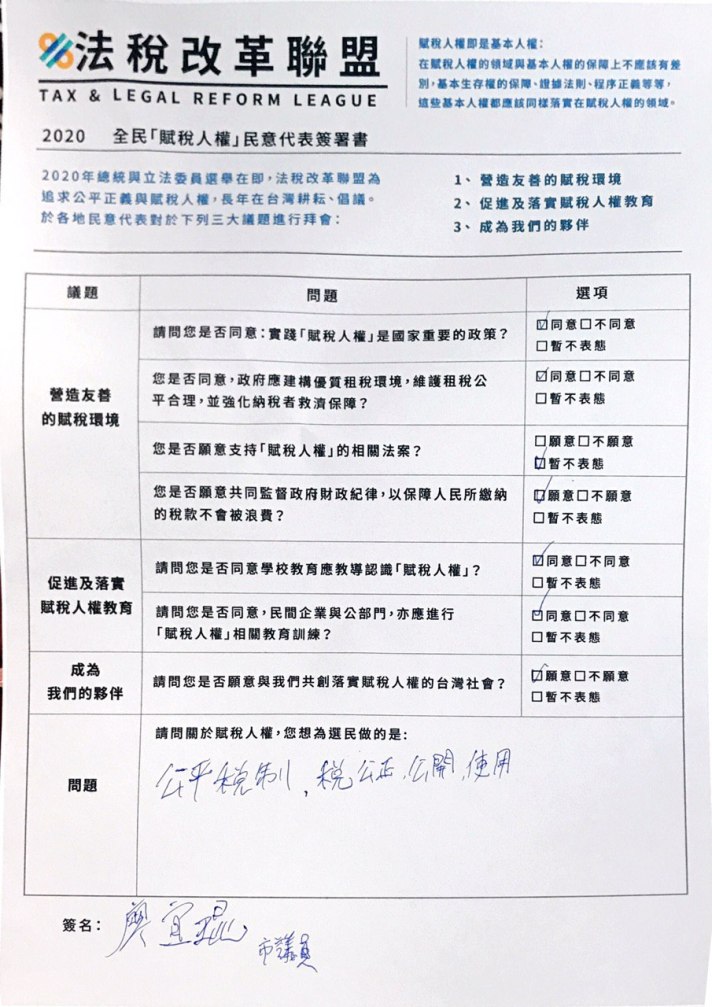 法稅改革聯盟
TAX & LEGAL REFORM LEAGUE
賦稅人權即是基本人權：
在賦稅人權的領域與基本人權的保障上不應該有差
別，基本生存權的保障、證據法則、程序正義等等，
這些基本人權都應該同樣落實在賦稅人權的領域。
2020 全民「賦稅人權」民意代表簽署書
2020年總統與立法委員選舉在即，法稅改革聯盟為
追求公平正義與賦稅人權，長年在台灣耕耘、倡議。
於各地民意代表對於下列三大議題進行拜會：
1、營造友善的賦稅環境
2、促進及落實賦稅人權教育
3、成為我們的夥伴
議題 問題 選項
營造友善
的賦稅環境
請問您是否同意：實踐「賦稅人權」是國家重要的政策？
☑同意☐不同意
☐暫不表態
您是否同意，政府應建構優質租稅環境，維護租稅公
平合理，並強化納稅者救濟保障？
☑同意☐不同意
☐暫不表態
您是否願意支持「賦稅人權」的相關法案？
☐願意☐不願意
☑暫不表態
您是否願意共同監督政府財政紀律，以保障人民所繳納
的稅款不會被浪費？
☑願意☐不願意
☐暫不表態
促進及落實
賦稅人權教育
請問您是否同意學校教育應教導認識「賦稅人權」？
☑同意☐不同意
☐暫不表態
請問您是否同意，民間企業與公部門，亦應進行
「賦稅人權」相關教育訓練？
☑同意☐不同意
☐暫不表態
成為
我們的夥伴
請問您是否願意與我們共創落實賦稅人權的台灣社會？
☑願意☐不願意
☐暫不表態
問題
請問關於賦稅人權，您想為選民做的是：
公平稅制，稅公正、公開、使用
簽名：
市議員